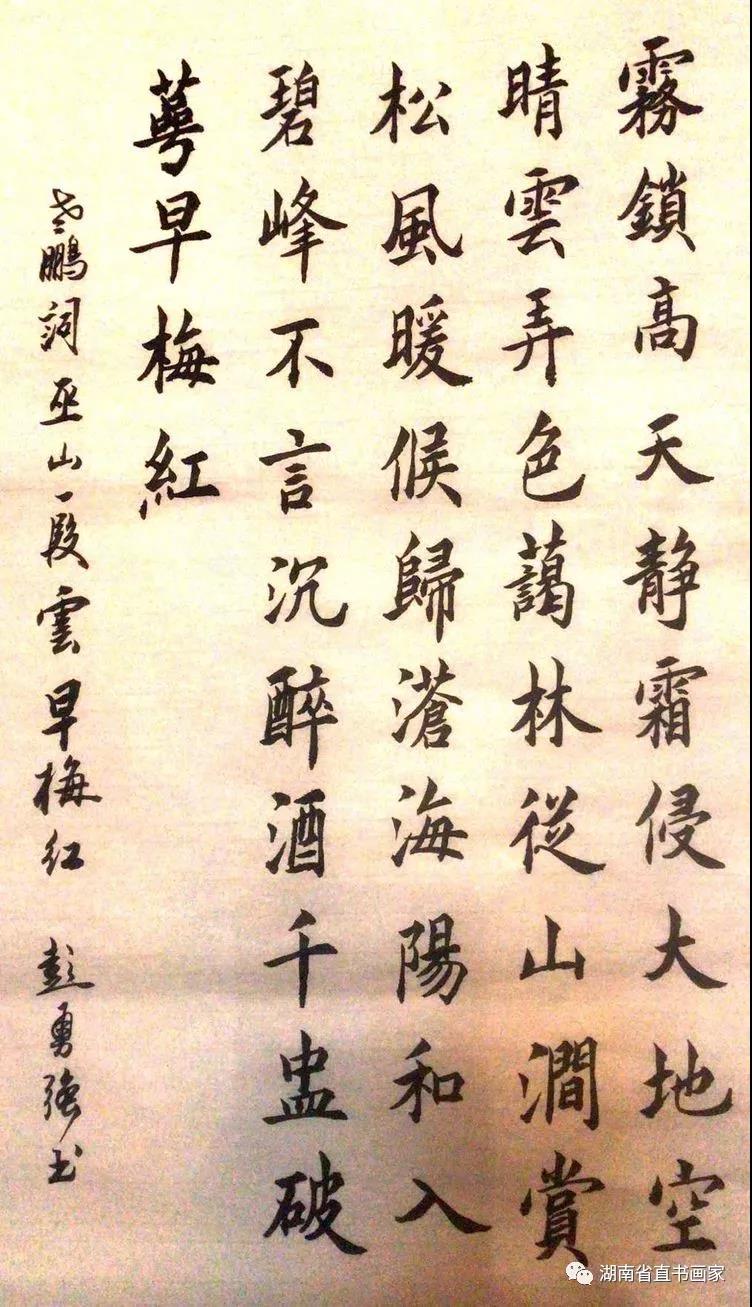 霧鎖高天静霜侵大地空
晴雲弄色藹林從山澗賞
松風暖候歸滄海陽和入
碧峰不言沉醉酒千盅破
萼早梅紅
老鵬詞巫山一段雲早梅红 彭勇强书
湖南省直书画家